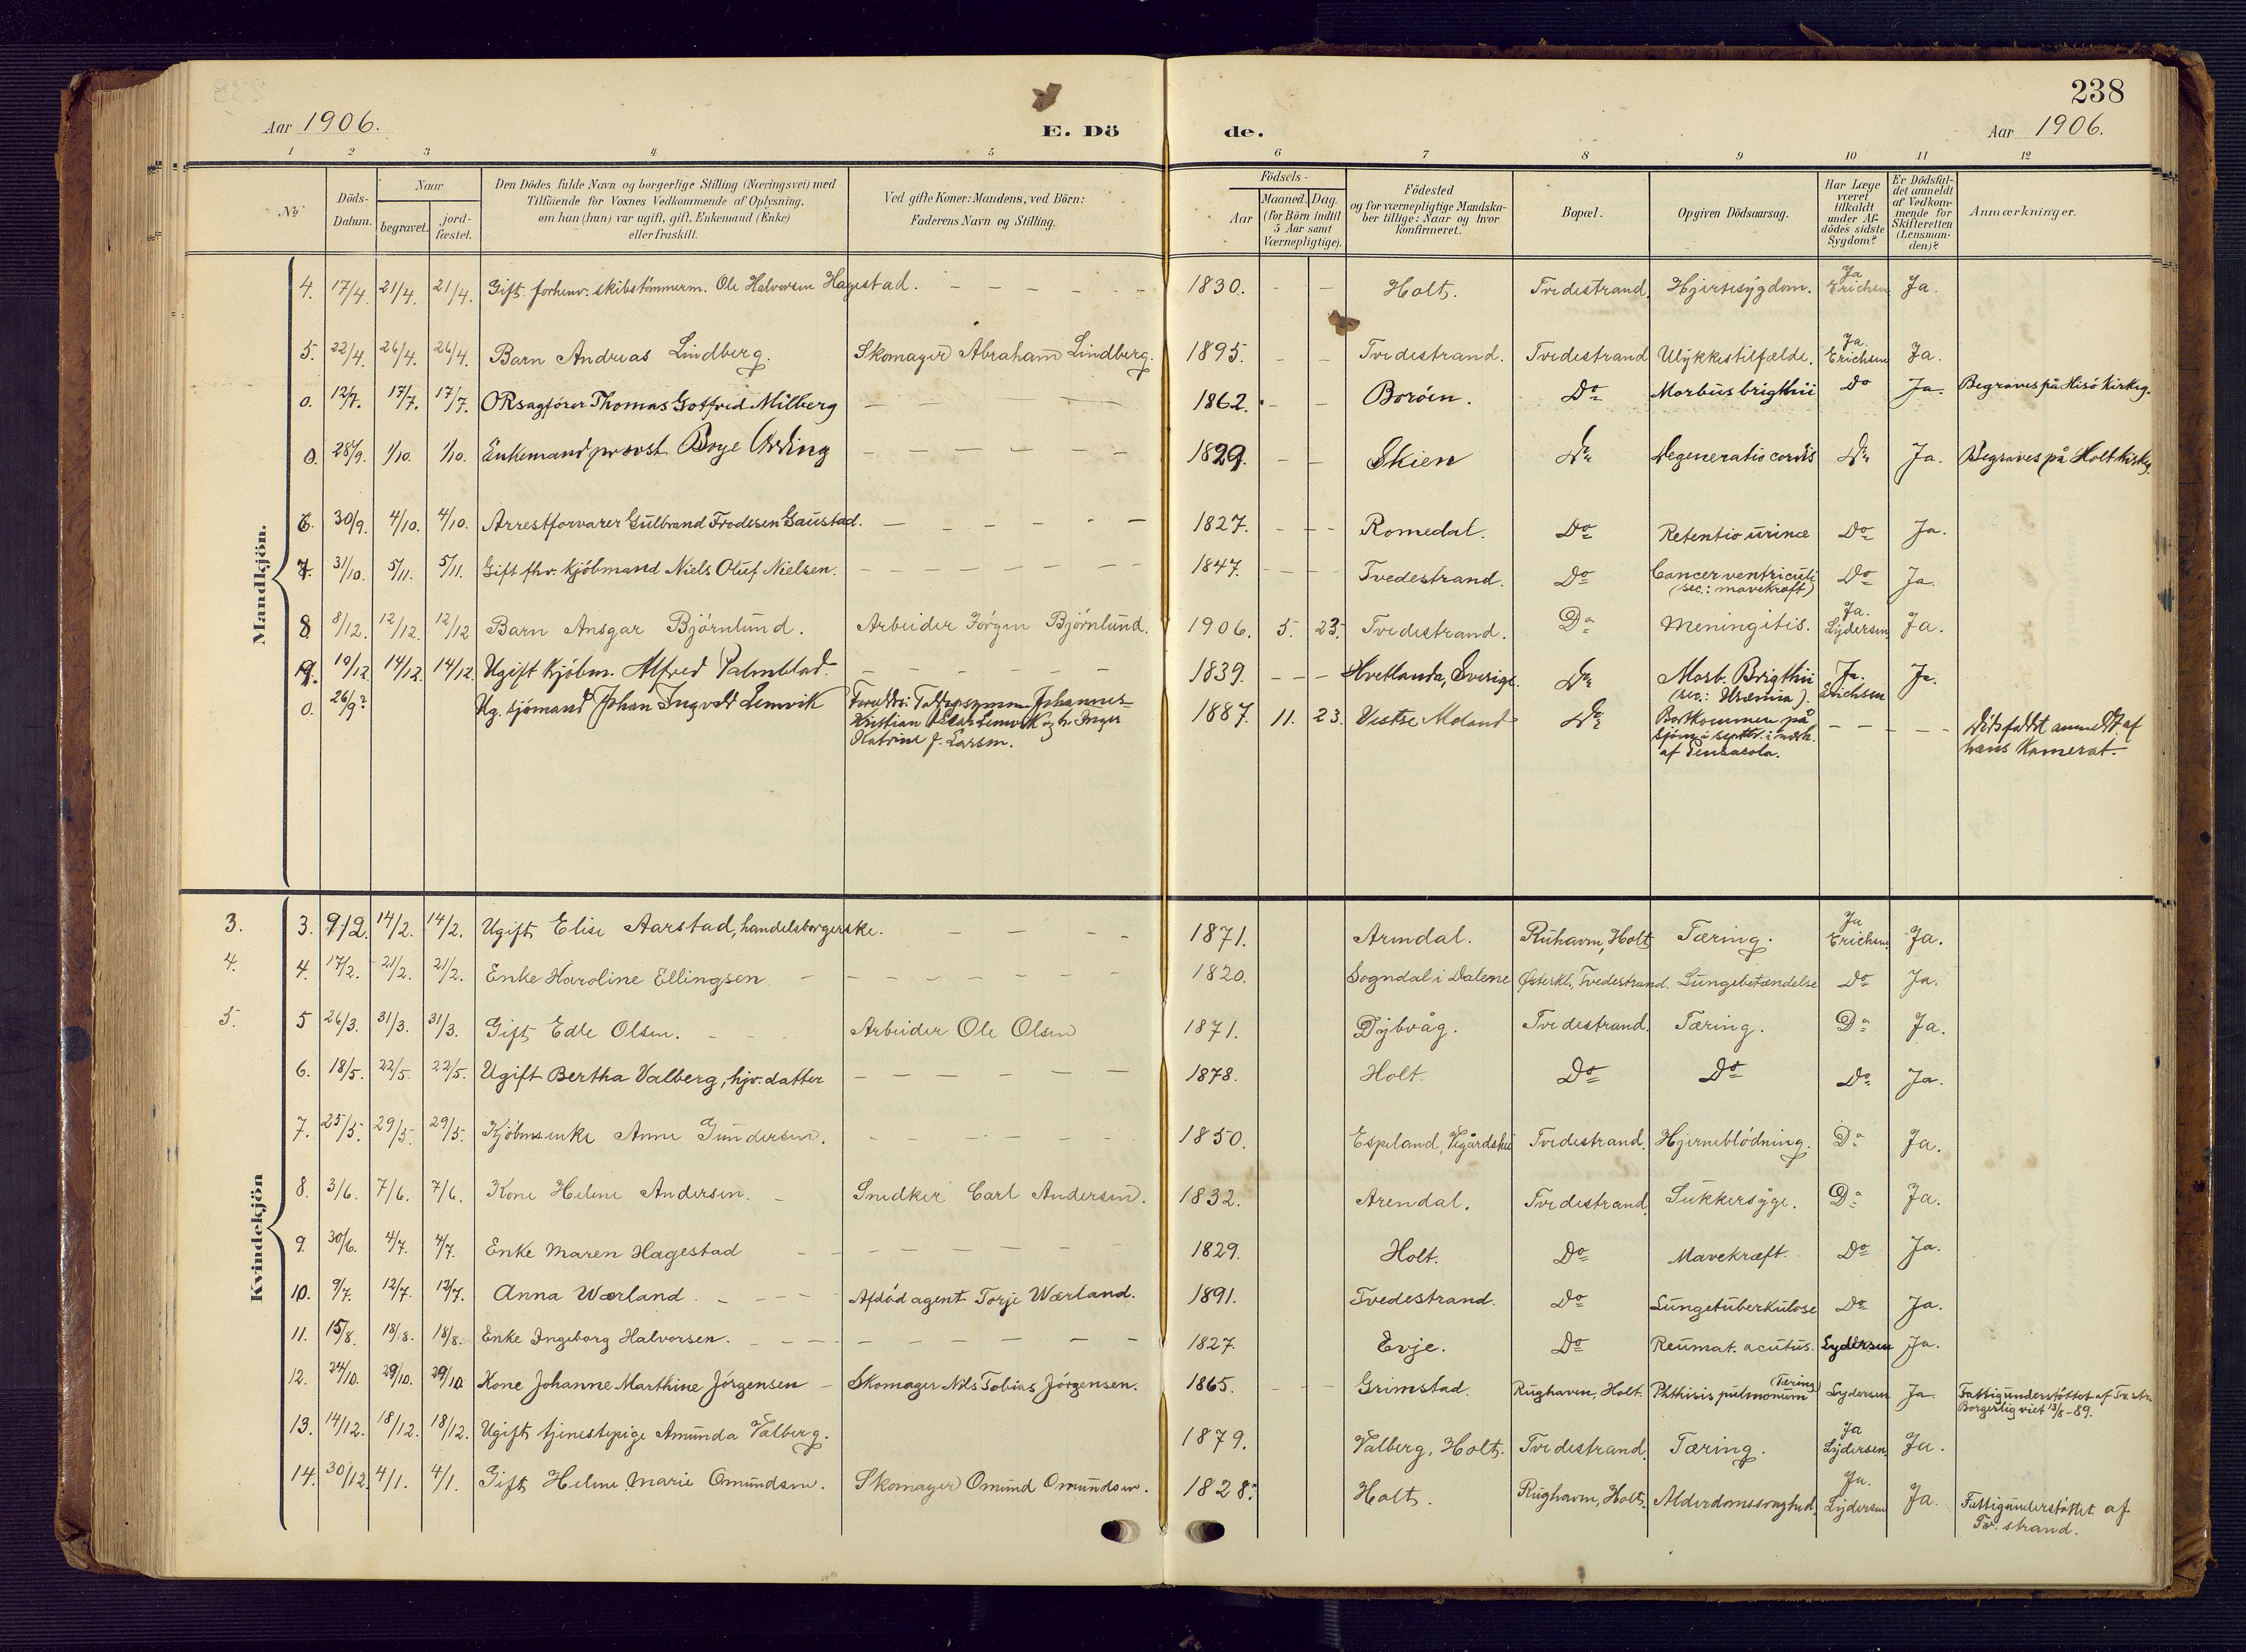 238
Aar 1906.
E. Dö de.
Aar 1906.
1 2 3 4 5 6 7 8 9 10 11 12
No
Döds-Datum.
Naar
begravet.
jordfæstet.
Den Dödes fulde Navn og borgerlige Stilling (Næringsvei) med
Tilföiende for Voxnes Vedkommende af Oplysning,
om han (hun) var ugift, gift, Enkemand (Enke)
eller fraskilt.
Ved gifte Koner: Mandens, ved Börn:
Faderens Navn og Stilling.
Födsels-
Aar
Maaned.
Dag.
(for Börn indtil
5 Aar samt
Værnepligtige).
Födested
og for værnepligtige Mandska-
ber tillige: Naar og hvor
konfirmeret.
Bopæl.
Opgiven Dödsaarsag.
Har Læge
været
tilkaldt
under Af-
dödes sidste
Sygdom?
Er Dödsfal-
det anmeldt
af Vedkom-
mende for
Skifteretten
(Lensman-
den)?
Anmærkninger.
Mandkjön.
4. 17/4. 21/4. 21/4. Gift. forhenv. skibstömmerm. Ole Halvorsen Hagestad. 1830. Holt. Tvedestrand. Hjertesygdom. Ja Erichsen Ja.
5. 22/4. 26/4. 26/4. Barn Andreas Lindberg. Skomager Abraham Lindberg. 1895. Tvedestrand. Tvedestrand Ulykkestilfælde. Ja. Erichsen Ja.
0. 12/7. 17/7. 17/7. ORsagförer Thomas Gotfred Milberg 1862. Boröen. Do Morbus brigthii Do Ja. Begraves på Hisö kirkeg.
0. 28/9. 1/10. 1/10. Enkemand provst Boye Ording 1829. Skien Do Degeneratio cordis Do Ja. Begraves på Holt kirkeg.
6. 30/9. 4/10. 4/10. Arrestforvarer Gulbrand Frodesen Gaustad. 1827. Romedal. Do Retentio urinæ Do Ja.
7. 31/10. 5/11. 5/11. Gift fhv. kjöbmand Niels Oluf Nielsen. 1847. Tvedestrand. Do Cancer ventriculi (sec.: mavekræft) Do Ja.
8 8/12. 12/12. 12/12 Barn Ansgar Björnlund. Arbeider Jörgen Björnlund. 1906. 5. 23. Tvedestrand. Do Meningitis. Ja. Lydersen Ja.
9. 10/12 14/12. 14/12. Ugift Kjöbm. Alfred Palmblad. 1839. Hvetlanda, Sverige. Do Morb. Brigthii (sec.: Uræmia). Ja. Erichsen Ja.
0. 26/9? Ug. sjömand Johan Ingvald Lemvik Forældre: Johannes
Kristian Lemvik og h. Inger
Katrine J. Larsen. 1887. 11. 23. Vestre Moland Do Bortkommen på
sjöen i septbr. i nærh.
af Pensacola. Dödsfaldet anmeldt af
hans Kamerat.
Kvindekjön
3. 3. 9/2. 14/2. 14/2. Ugift Elise Aarstad, handelsborgerske. 1871. Arendal. Ruhavn, Holt Tæring. Ja Erichsen Ja.
4. 4. 17/2. 21/2. 21/2. Enke Karoline Ellingsen 1820. Sogndal i Dalene Østerkl., Tvedestrand. Lungebetændelse Do Ja.
5. 5 26/3. 31/3. 31/3. Gift Edle Olsen. Arbeider Ole Olsen 1871. Dybvåg. Tvedestrand. Tæring. Do Ja.
6. 18/5. 22/5. 22/5. Ugift Bertha Valberg, hjv. datter 1878. Holt. Do Do Do Ja.
7. 25/5. 29/5. 29/5. Kjöbms.enke Anne Gundersen. 1850. Espeland, Vegårdshei Tvedestrand. Hjerneblödning. Do Ja.
8. 3/6. 7/6. 7/6. Kone Helene Andersen. Snedker Carl Andersen. 1832. Arendal. Tvedestrand. Sukkersyge. Do Ja.
9. 30/6. 4/7. 4/7. Enke Maren Hagestad 1829. Holt. Do Mavekræft. Do Ja.
10. 9/7. 12/7. 12/7. Anna Wærland. Afdöd agent Torje Wærland. 1891. Tvedestrand. Do Lungetuberkulose Do Ja.
11. 15/8. 18/8. 18/8. Enke Ingeborg Halvorsen. 1827. Evje. Do Reumat. acutus. Lydersen Ja.
12. 24/10. 29/10. 29/10 Kone Johanne Marthine Jörgensen Skomager Nils Tobias Jörgensen. 1865. Grimstad. Rughaven, Holt. Phthisis pulmonum (Tæring) Lydersen Ja. Fattigunderstöttet af
Borgerlig viet 13/8-89.
13. 14/12. 18/12. 18/12. Ugift tjenestepige Amunda Valberg. 1879. Valberg, Holt. Tvedestrand. Tæring. Ja Lydersen. Ja.
14. 30/12. 4/1. 4/1. Gift Helene Marie Omundsen. Skomager Omund Omundsen. 1828. Holt. Rughaven, Holt. Alderdomssvaghed. Ja. Lydersen Ja. Fattigunderstöttet af
Tv.strand.